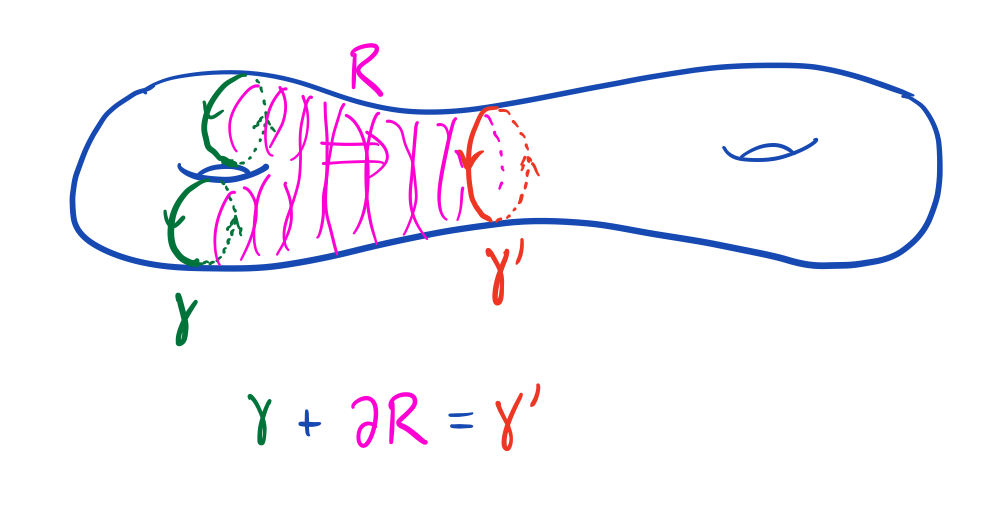 R
γ'
γ
γ + ∂R = γ'